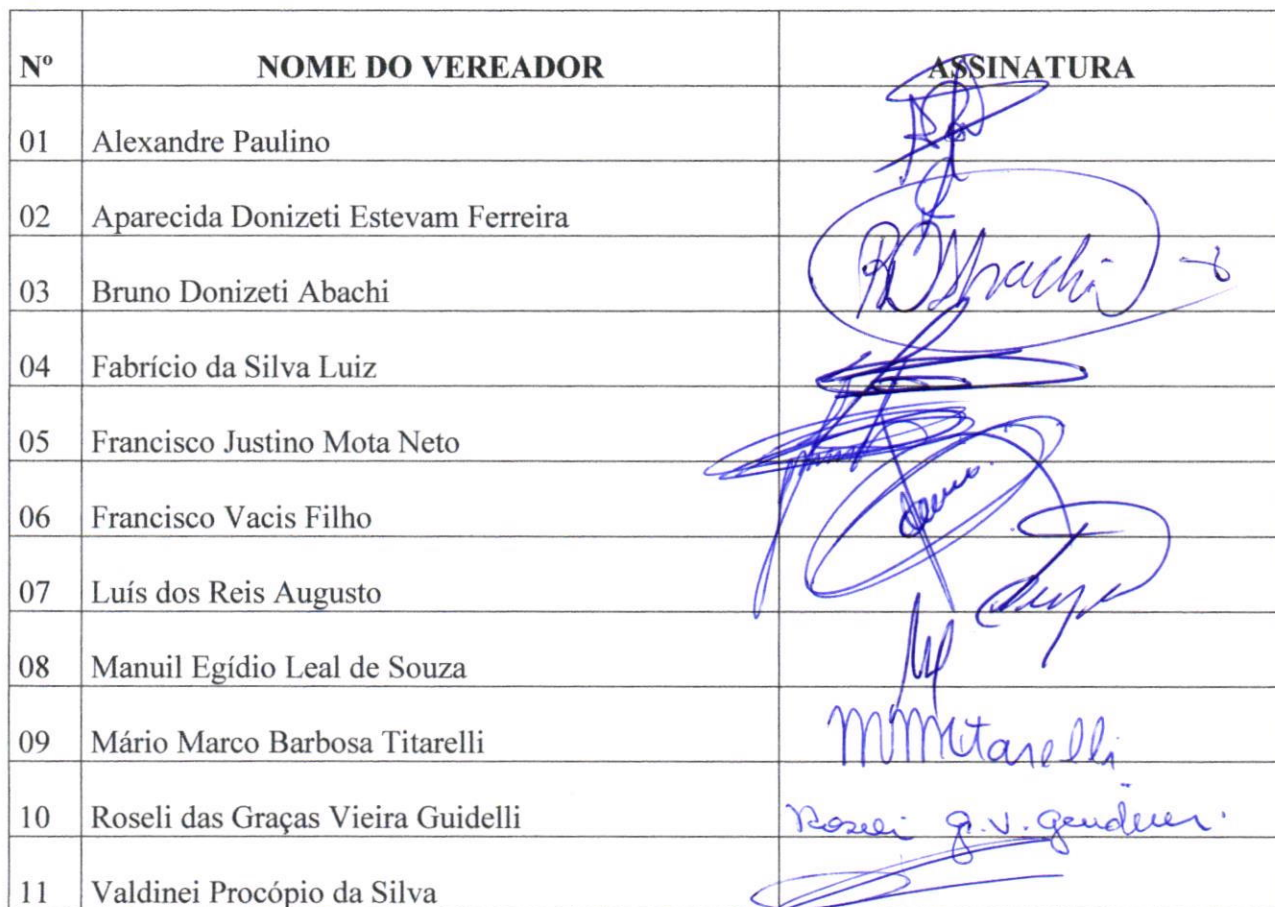 Nº NOME DO VEREADOR ASSINATURA
01 Alexandre Paulino
02 Aparecida Donizeti Estevam Ferreira
03 Bruno Donizeti Abachi
04 Fabrício da Silva Luiz
05 Francisco Justino Mota Neto
06 Francisco Vacis Filho
07 Luís dos Reis Augusto
08 Manuil Egídio Leal de Souza
09 Mário Marco Barbosa Titarelli
10 Roseli das Graças Vieira Guidelli Roseli G. V.
11 Valdinei Procópio da Silva